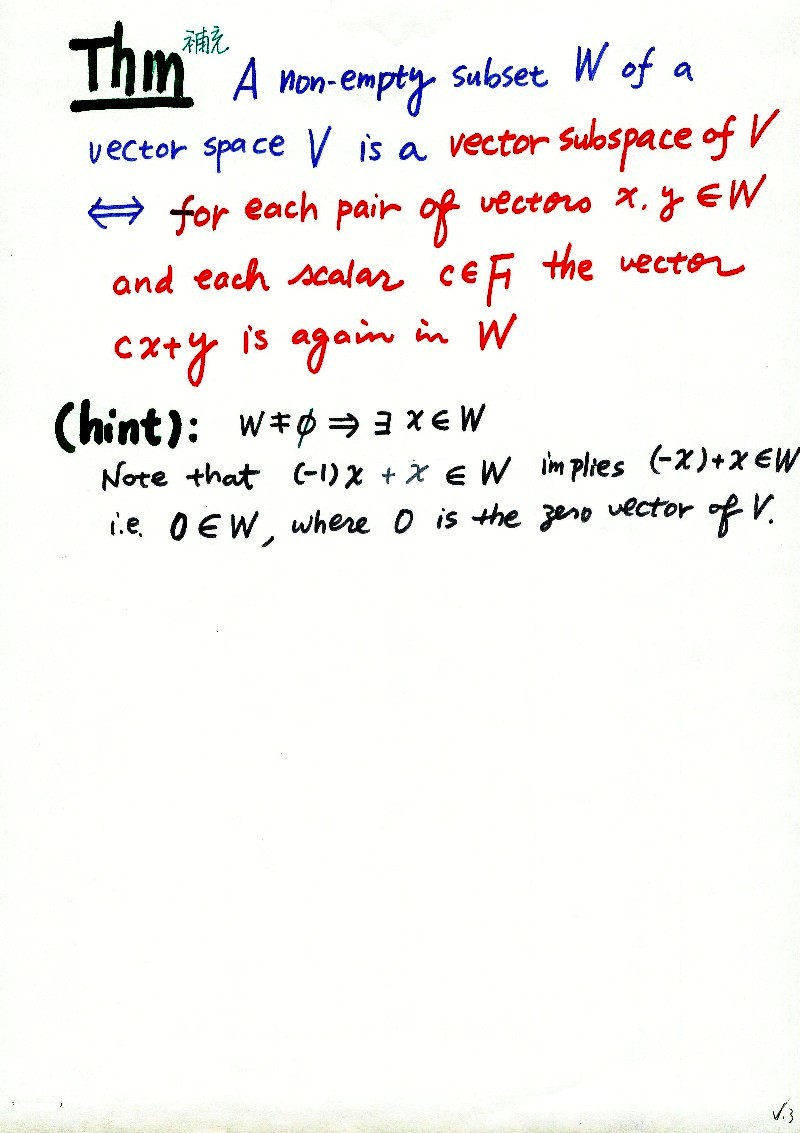 Thm 補充 A non-empty subset W of a
vector space V is a vector subspace of V
⟺ for each pair of vectors x, y ∈ W
and each scalar c ∈ F, the vector
cx+y is again in W
(hint): W ≠ ϕ ⇒ ∃ x ∈ W
Note that (-1)x + x ∈ W implies (-x)+x ∈ W
i.e. 0 ∈ W, where 0 is the zero vector of V.